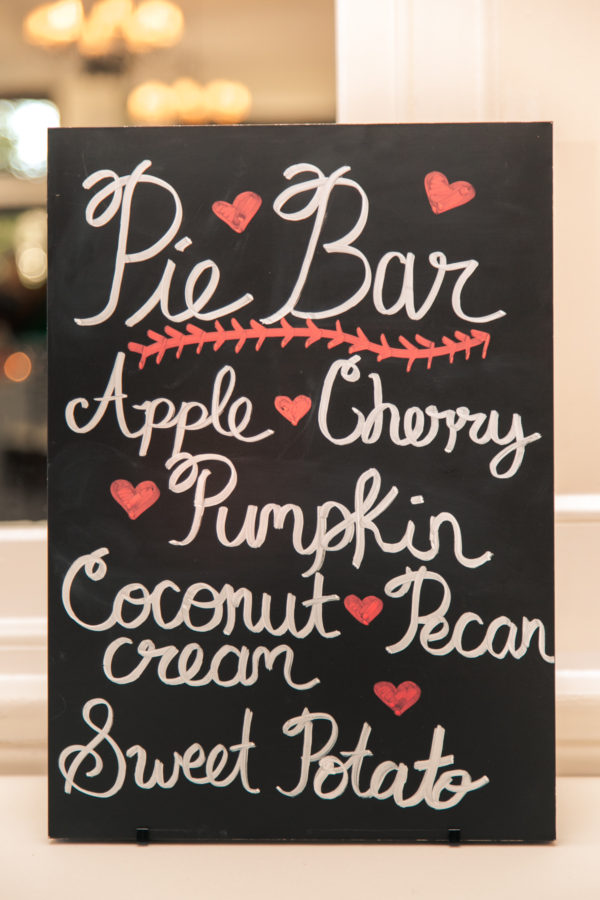 Pie Bar
Apple Cherry
Pumpkin
Coconut Pecan
cream
Sweet Potato